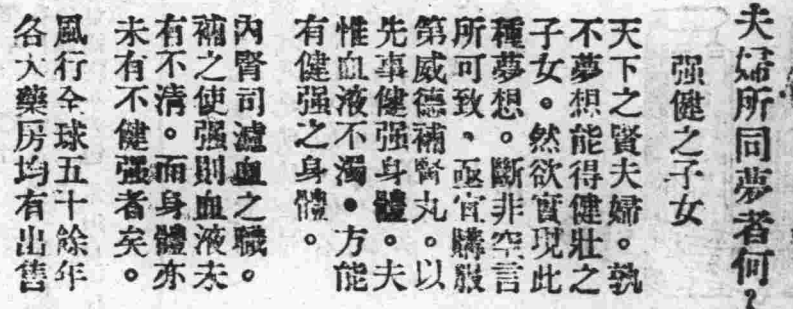 夫婦所同夢者何？
强健之子女
天下之賢夫婦。孰
不夢想能得健壯之
子女。然欲實現此
種夢想。斷非空言
所可致、亟宜購服
第威德補腎丸。以
先事健强身體。夫
惟血液不濁。方能
有健强之身體。
內腎司濾血之職。
補之使强則血液未
有不清。而身體亦
未有不健强者矣。
風行全球五十餘年
各大藥房均有出售